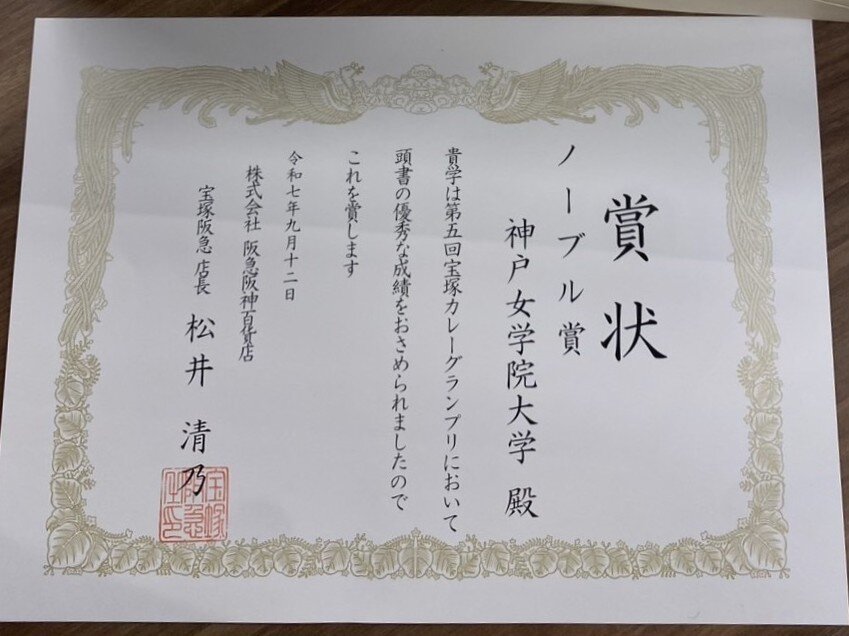 賞状
ノーブル賞
神戸女学院大学 殿
貴学は第五回宝塚カレーグランプリにおいて
頭書の優秀な成績をおさめられましたので
これを賞します
令和七年九月十二日
株式会社 阪急阪神百貨店
宝塚阪急 店長 松井 清乃